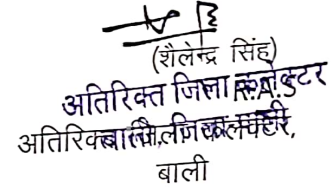 (शैलेन्द्र सिंह)
R.A.S
अतिरिक्त जिला कलेक्टर
अतिरिक्त जिला कलेक्टर,
बाली